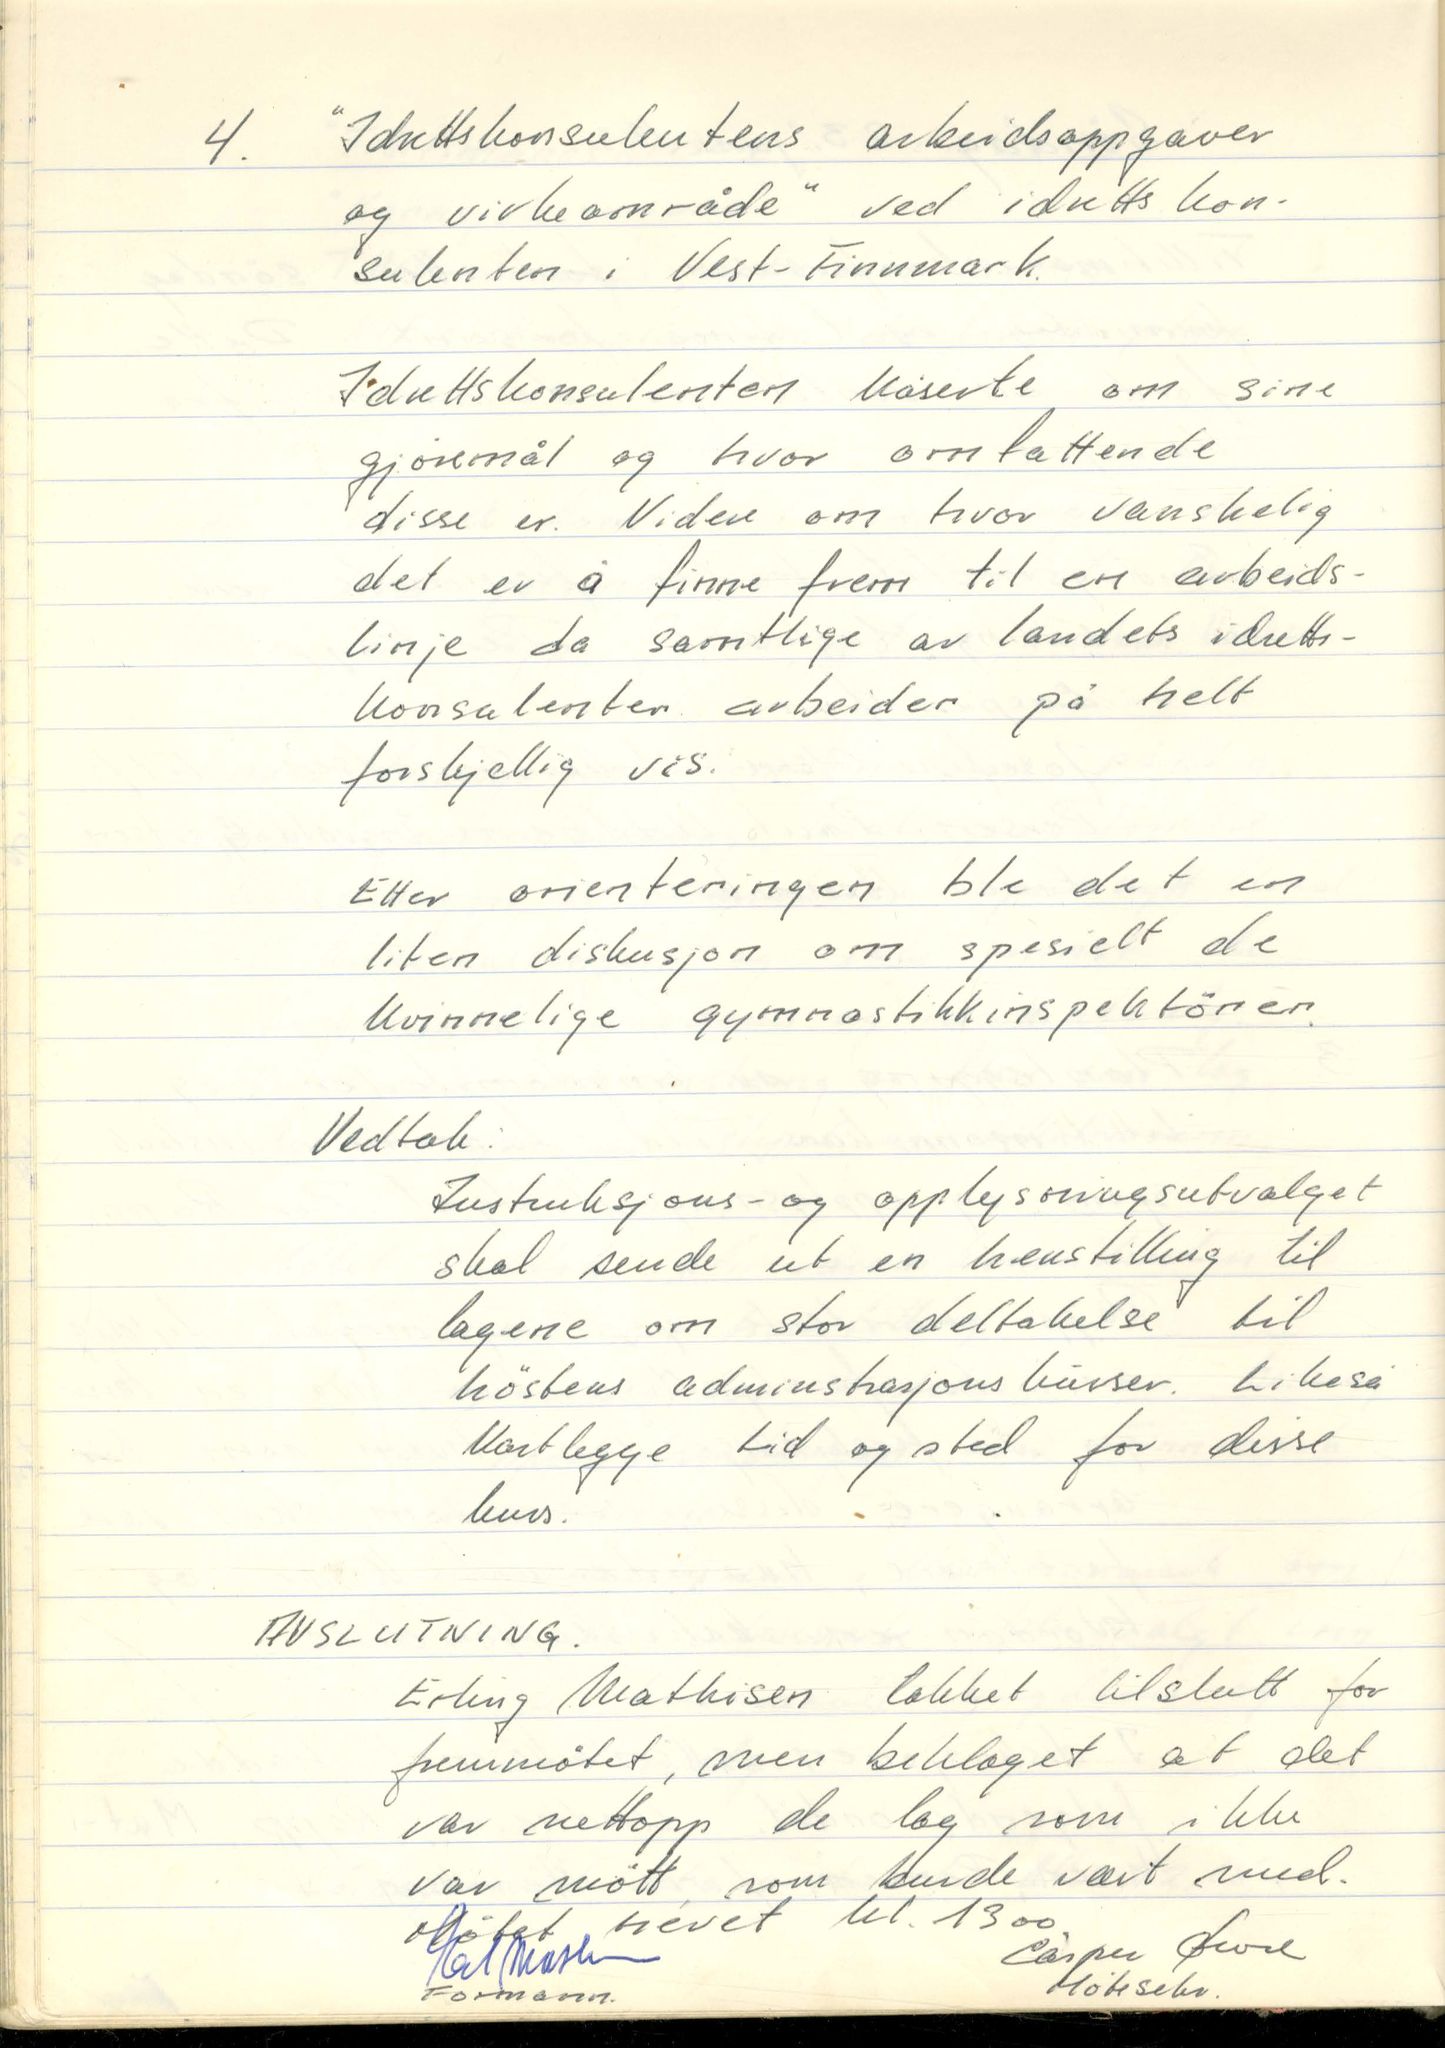 4. "Idrettskonsulentens arbeidsoppgaver
og virkeområde" ved idrettskon-
sulenten i Vest-Finnmark.
Idrettskonsulenten kåserte om sine
gjöremål og hvor omfattende
disse er. Videre om hvor vanskelig
det er å finne frem til en arbeids-
linje da samtlige av landets idretts-
konsulenter arbeider på helt
forskjellig vis.
Etter orienteringen ble det en
liten diskusjon om spesielt de
kvinnelige gymnastikkinspektörer.
Vedtak:
Instruksjons- og opplysningsutvalget
skal sende ut en henstilling til
lagene om stor deltakelse til
höstens adminstrasjonskurser. Likeså
kartlegge tid og sted for disse
kurs.
AVSLUTNING.
Erling Mathisen takket tilslutt for
fremmötet, men beklaget at det
var nettopp de lag som ikke
var mött, som burde vært med.
Mötet hevet kl. 1300.
Casper
Formann. Mötesekr.